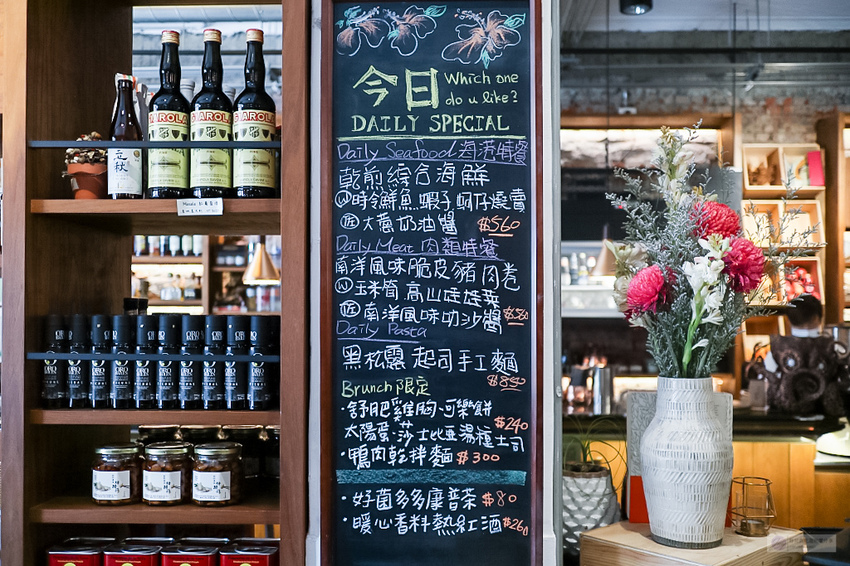 今日
Which one
do u like?
DAILY SPECIAL
Daily Seafood 海港特餐
乾煎綜合海鮮
Ⓦ 時令鮮魚 蝦子 蚵仔燒賣
大蔥奶油醬 $560
Daily Meat 肉類特餐
南洋風味脆皮豬肉卷
Ⓦ 玉米筍 高山娃娃菜
南洋風味叻沙醬
Daily Pasta
黑松露 起司手工麵
Brunch限定
·舒肥雞胸·可樂餅
太陽蛋·莎士比亞湯種土司 $240
·鴨肉乾拌麵 $300
·好菌多多康普茶 $80
·暖心香料熱紅酒 $260
GAROLA
立秋
ORO